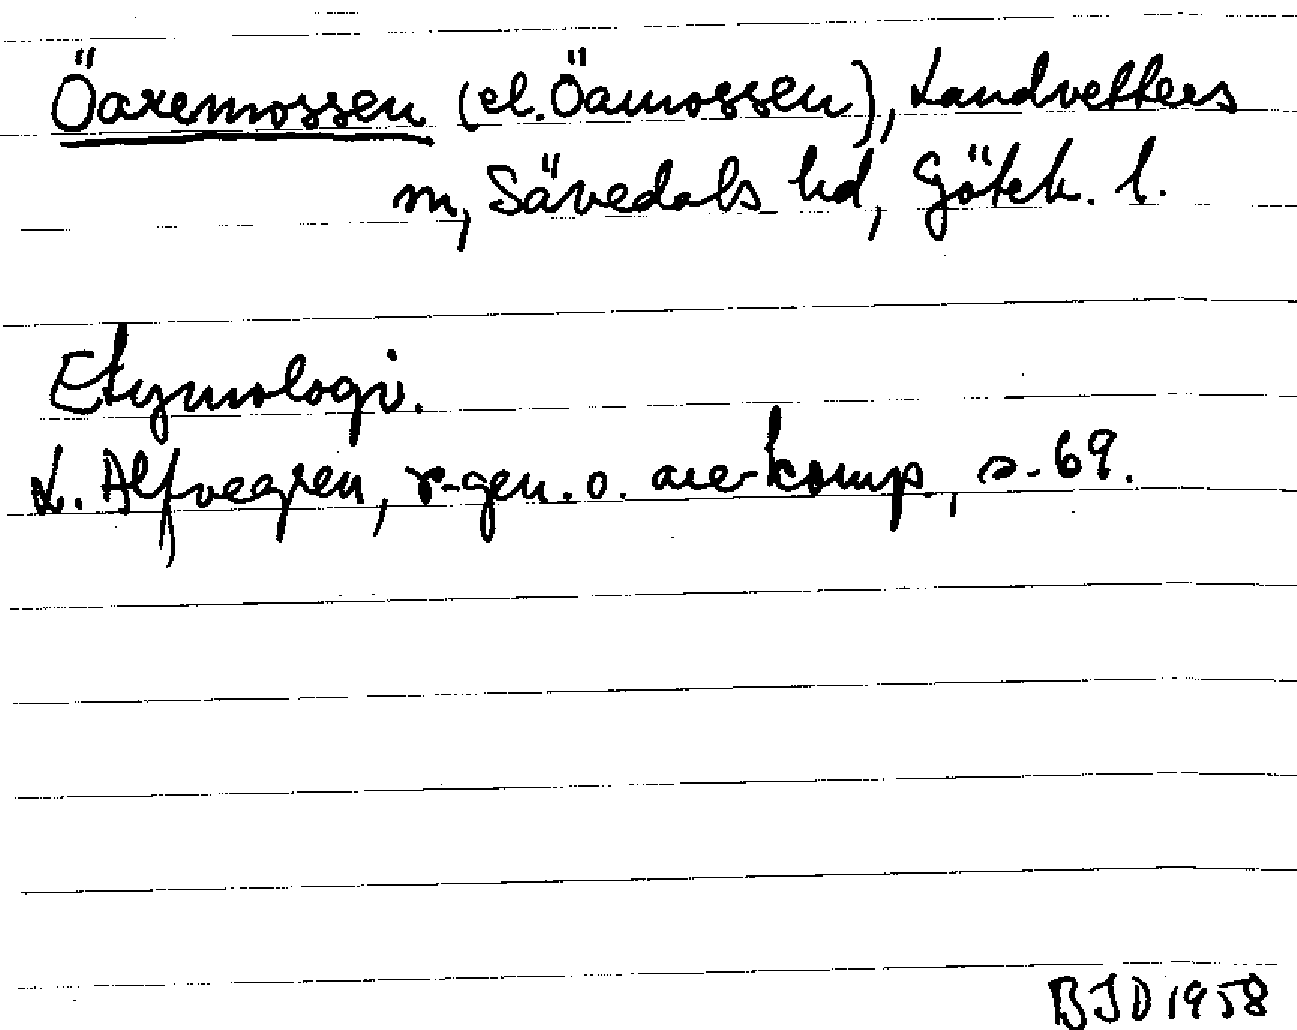 Öaremossen (el. Öamossen), Landvetters
sn, Sävedals hd, Göteb. l.
Etymologi.
L. Alfvegren, r-gen. o. are-komp, s. 69.
BJD 1958